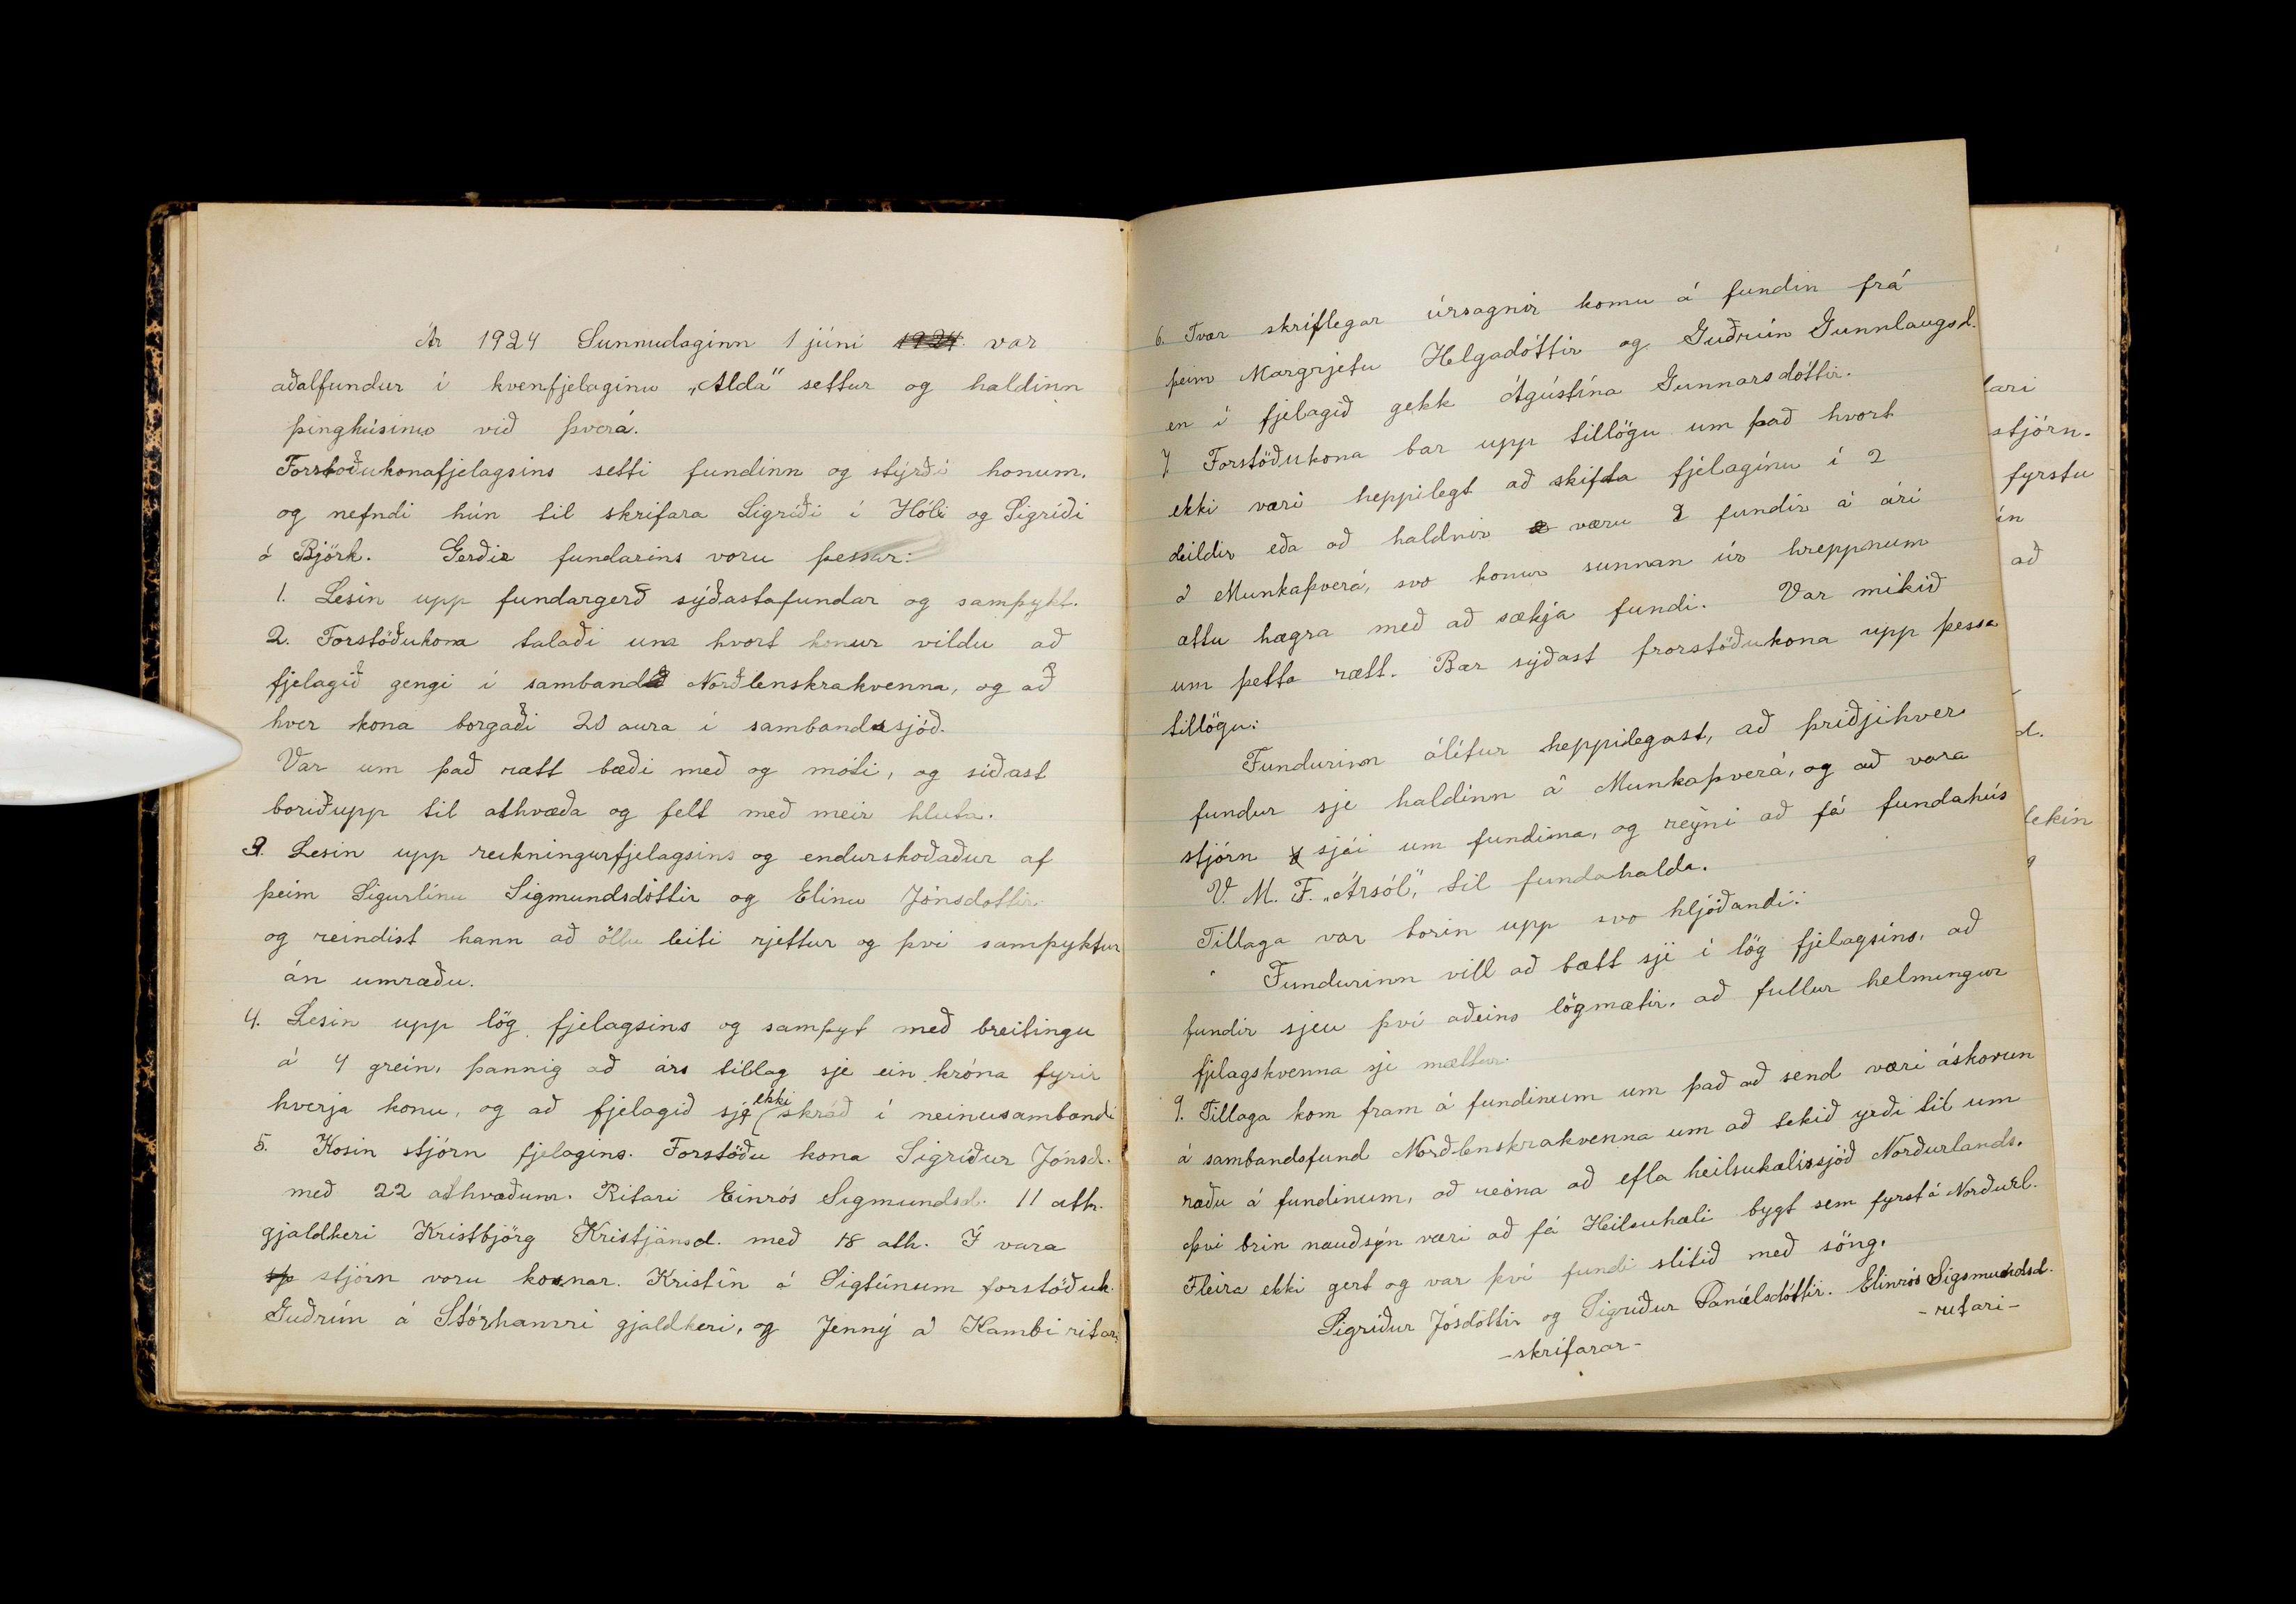 Ár 1924 Sunnudaginn 1 júni 1924 var
aðalfundur í kvenfjelaginu „Alda" settur og haldinn
þinghúsinu við þverá.
Forstoðukonafjelagsins setti fundinn og stýrði honum.
og nefndi hún til skrifara Sigríði í Hóli og Sigríði
á Björk. Gerðir fundarins voru þessar:
1. Lesin upp fundargerð sýðastafundar og samþykt.
2. Forstöðukona talaði um hvort konur vildu að
fjelagið gengi í samband Norðlenskrakvenna, og að
hver kona borgaði 20 aura í sambandssjóð.
Var um það rætt bæði með og móti, og síðast
boriðupp til athvæða og felt með meir hluta.
3. Lesin upp reikningurfjelagsins og endurskoðaður af
þeim Sigurlínu Sigmundsdóttir og Elínu Jónsdottir
og reindist hann að öllu leiti rjettur og því samþyktur
án umræðu.
4. Lesin upp lög fjelagsins og samþyt með breitingu
á 4 grein, þannig að árs tillag sje ein króna fyrir
hverja konu, og að fjelagið sje ekki skráð í neinusambandi
5. Kosin stjórn fjelagins. Forstöðu kona Sigríður Jónsd.
með 22 athvæðum. Ritari Einrós Sigmundsd. 11 ath.
gjaldkeri Kristbjörg Kristjánsd. með 18 ath. Í vara
sp stjórn voru kosnar. Kristín á Sigtúnum forstöðuk.
Guðrún á Stórhamri gjaldkeri, og Jenný á Kambi ritari
6. Tvær skriflegar úrsagnir komu á fundin frá
þeim Margrjetu Helgadóttir og Guðrún Gunnlaugsd.
en í fjelagið gekk Ágústína Gunnarsdóttir.
7 Forstöðukona bar upp tillögu um það hvort
ekki væri heppilegt að skifta fjelaginu í 2
deildir eða að haldnir væru 2 fundir á ári
á Munkaþverá, svo konur sunnan úr hreppnum
ættu hægra með að sækja fundi. Var mikið
um þetta rætt. Bar sýðast frorstöðukona upp þessa
tillögu:
Fundurinn álítur heppilegast, að þriðjihver
fundur sje haldinn á Munkaþverá, og að vara
stjórn sjái um fundina, og reýni að fá fundahús
V. M. F. „Ársól", til fundahalda.
Tillaga var borin upp svo hljóðandi:
Fundurinn vill að bætt sje í lög fjelagsins, að
fundir sjeu því aðeins lögmætir, að fullur helmingur
fjelagskvenna sje mættur.
9. Tillaga kom fram á fundinum um það að send væri áskorun
á sambandsfund Norðlenskrakvenna um að tekið yrði til um
ræðu á fundinum, að reina að efla heilsukælissjóð Norðurlands.
því brin nauðsýn væri að fá Heilsuhæli bygt sem fyrst á Norðurl.
Fleira ekki gert og var því fundi slitið með söng.
Sigríður Jósdóttir og Sigríður Daníelsdóttir. Elinrós Sigsmundsd.
-skrifarar- -ritari-
lari
stjórn.
fyrstu
ín
að
d.
tekin